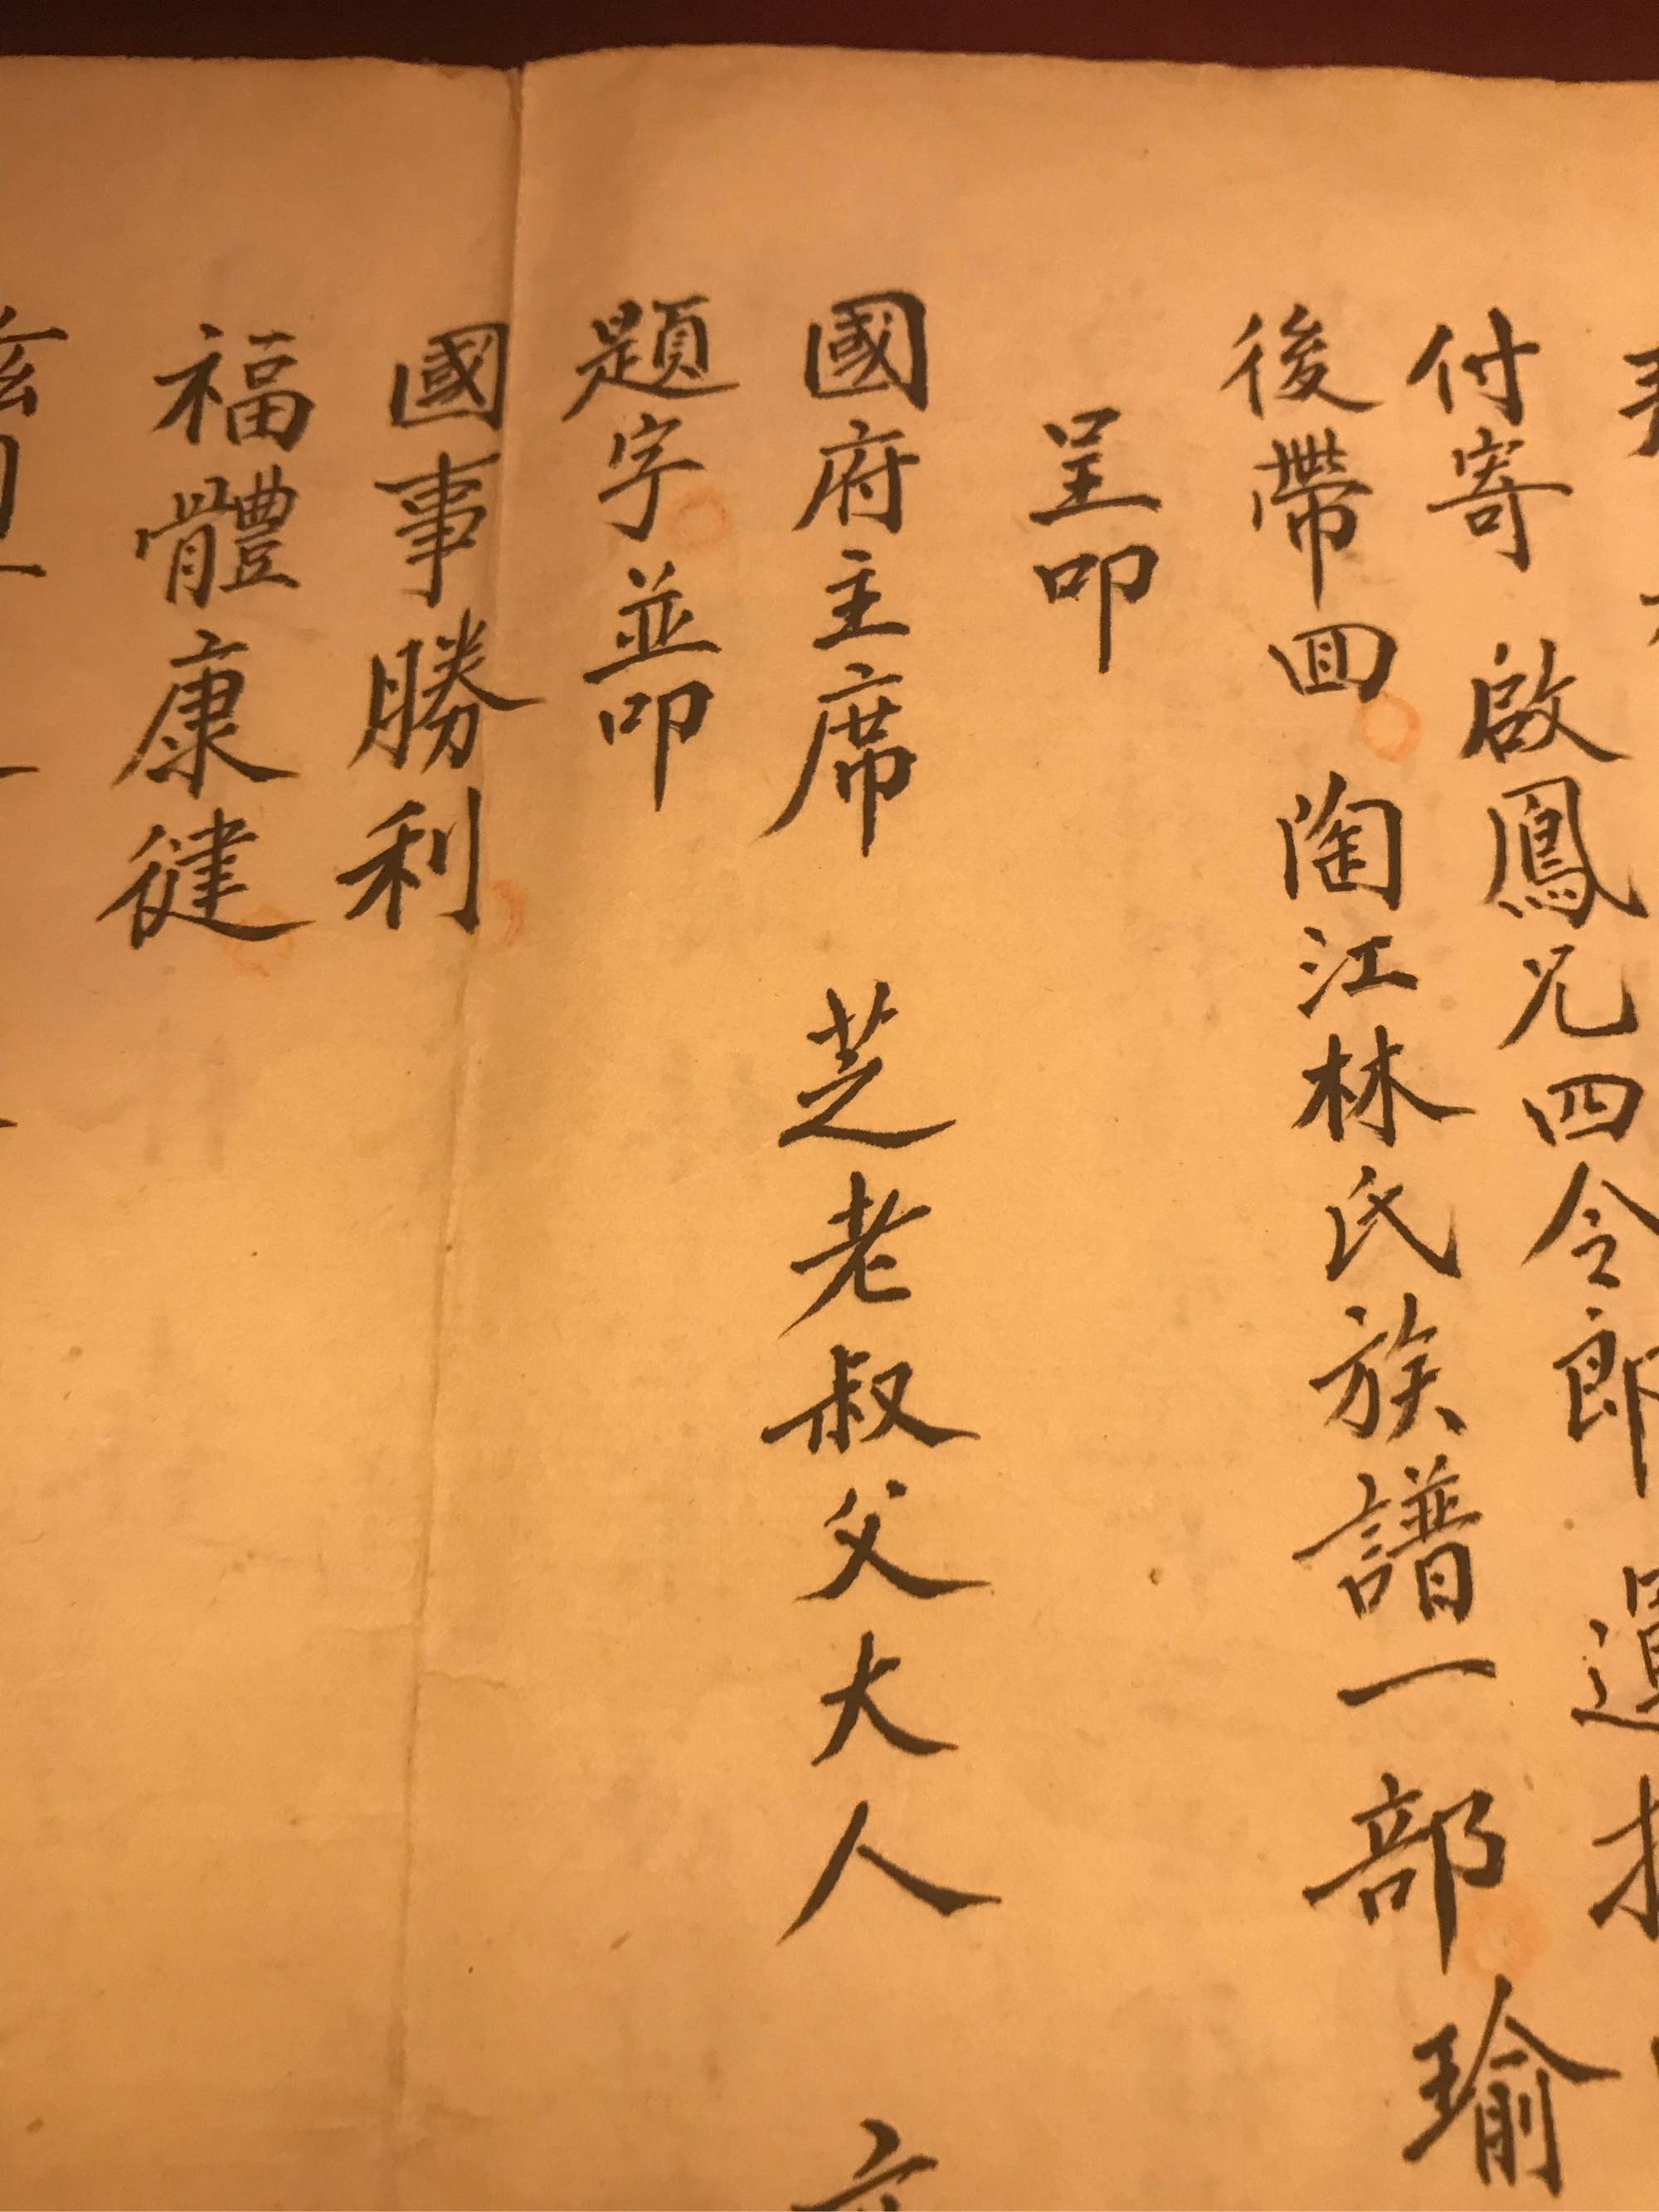 付寄 啟鳳兄四令郎
後帶回 陶江林氏族譜一部 瑜
呈叩
國府主席 芝老叔父大人
題字並叩
國事勝利
福體康健